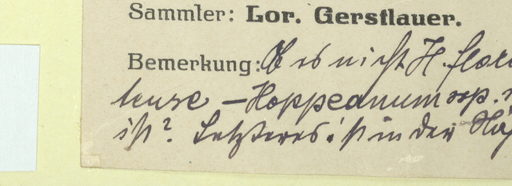 Sammler: Lor. Gerstlauer.
Bemerkung: Ob es nicht H. flor
tense – Hoppeanum ssp.
ist? Letzteres ist in der Nä